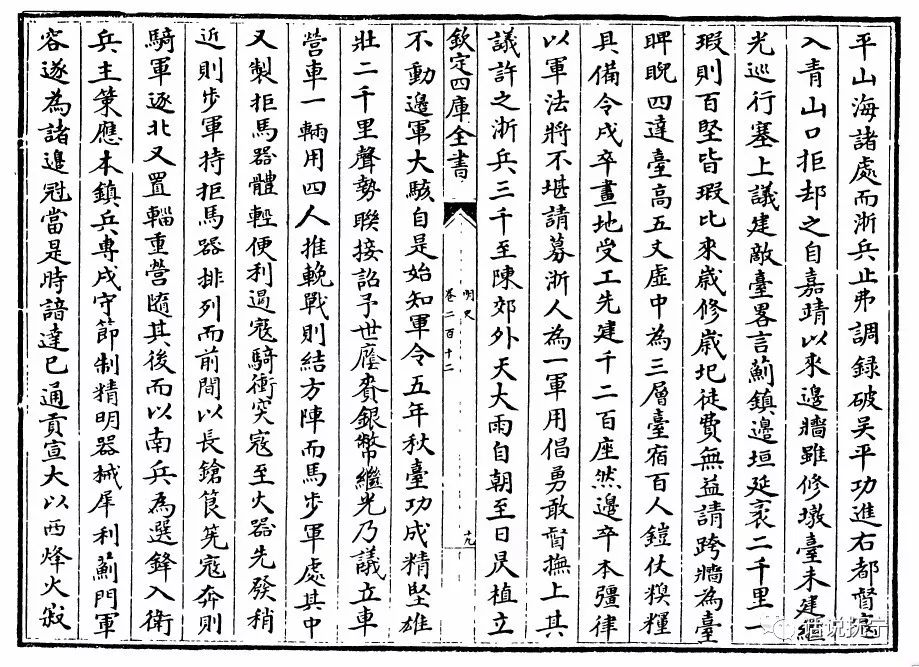 平山海諸處而浙兵止弗調録破吳平功進右都督寇
入青山口拒却之自嘉靖以來邊牆雖修墩臺未建繼
光巡行塞上議建敵臺畧言薊鎮邊垣延袤二千里一
瑕則百堅皆瑕比來歲修歲圮徒費無益請跨牆為臺
睥睨四達臺高五丈虚中為三層臺宿百人鎧仗糗糧
具備令戍卒畫地受工先建千二百座然邊卒本彊律
以軍法將不堪請募浙人為一軍用倡勇敢督撫上其
議許之浙兵三千至陳郊外天大雨自朝至日昃植立
欽定四庫全書
明史
卷二百十二
十九
不動邊軍大駭自是始知軍令五年秋臺功成精堅雄
壯二千里聲勢聯接詔予世廕賚銀幣繼光乃議立車
營車一輛用四人推輓戰則結方陣而馬步軍處其中
又製拒馬器體輕便利遏寇騎衝突寇至火器先發稍
近則步軍持拒馬器排列而前間以長鎗筤筅寇奔則
騎軍逐北又置輜重營隨其後而以南兵為選鋒入衛
兵主策應本鎮兵專戍守節制精明器械犀利薊門軍
容遂為諸邊冠當是時諳達已通貢宣大以西烽火寂
指说抚宁